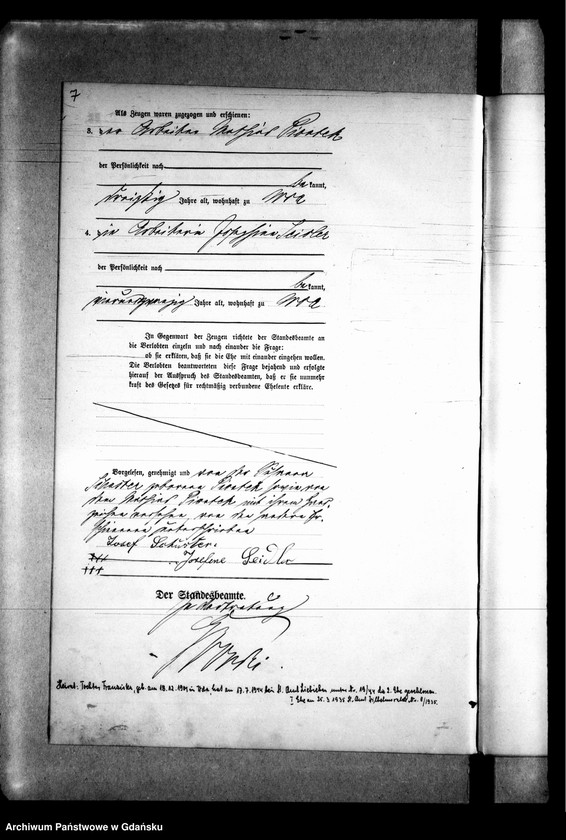 7
Als Zeugen waren zugezogen und erschienen:
3. der Arbeiter Mathias Piontek
der Persönlichkeit nach
be kannt,
dreißig Jahre alt, wohnhaft zu Uda
4. die Arbeiterin Josephine Seidler
der Persönlichkeit nach
be kannt,
vierundzwanzig Jahre alt, wohnhaft zu Uda
In Gegenwart der Zeugen richtete der Standesbeamte an
die Verlobten einzeln und nach einander die Frage:
ob sie erklären, daß sie die Ehe mit einander eingehen wollen.
Die Verlobten beantworteten diese Frage bejahend und erfolgte
hierauf der Ausspruch des Standesbeamten, daß er sie nunmehr
kraft des Gesetzes für rechtmäßig verbundene Eheleute erkläre.
Vorgelesen, genehmigt und von der Ehefrau
Schuster geborenen Piontek sowie von
dem Mathias Piontek mit ihrem Hand-
zeichen versehen, von den anderen Er-
schienenen unterschrieben
Josef Schuster.
+++ Josefine Seidler
+++
Der Standesbeamte.
In Vertretung
Heirat: Tochter Franziska, geb. am 18.12.1909 in Uda, hat am 17.7.1944 bei St. Amt unter Nr. 19/44 die 2. Ehe geschlossen.
I Ehe am 26.3.1935 St. Amt Nr. 8/1935.
Archiwum Państwowe w Gdańsku